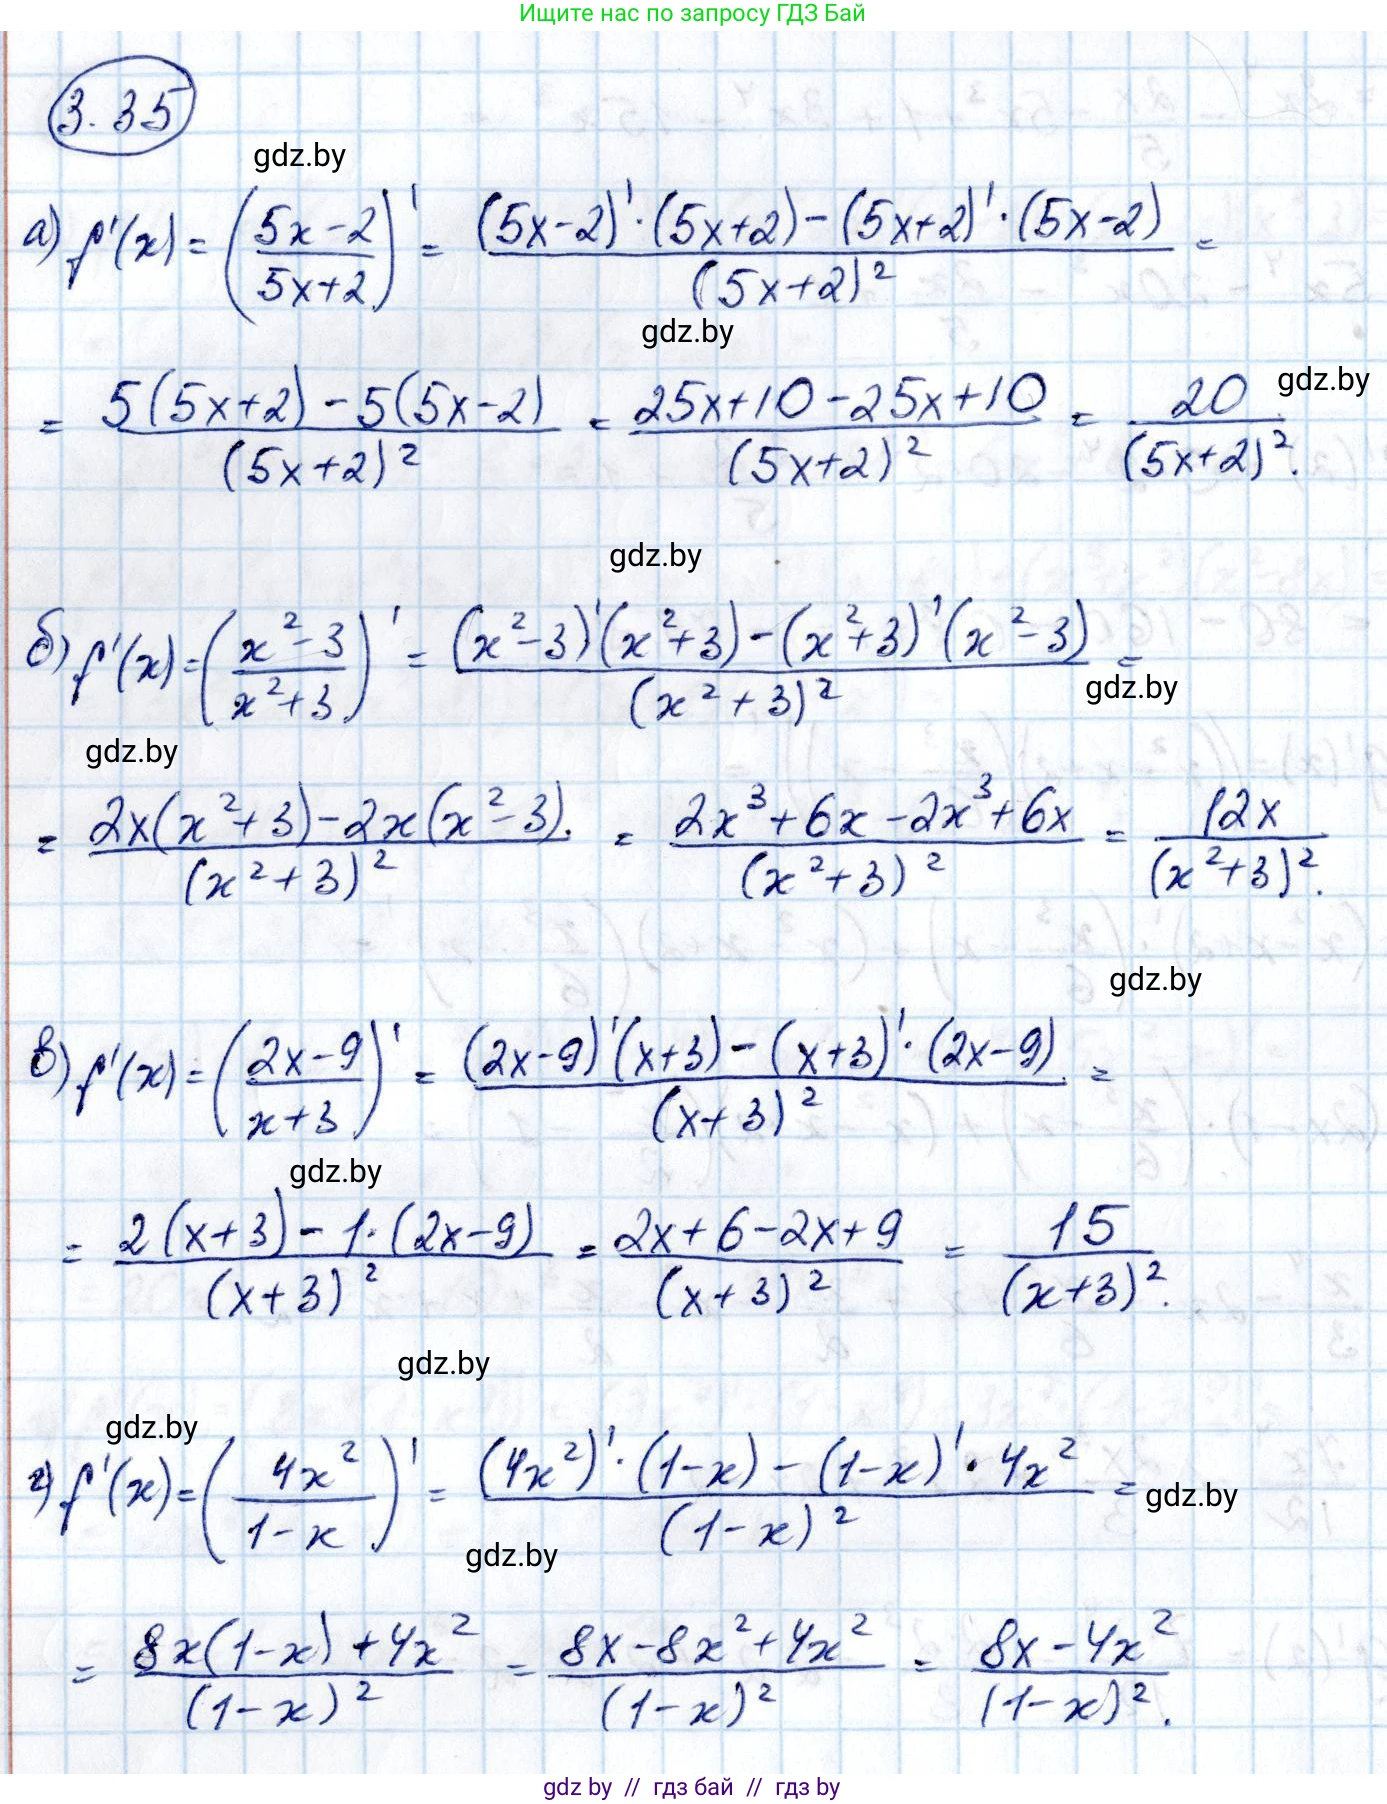 Ищите нас по запросу ГДЗ Бай
3.35
gdz.by
а) f'(x) = ((5x-2)/(5x+2))' = ((5x-2)'·(5x+2)-(5x+2)'·(5x-2))/(5x+2)² =
gdz.by
= (5(5x+2)-5(5x-2))/(5x+2)² = (25x+10-25x+10)/(5x+2)² = 20/(5x+2)².
gdz.by
gdz.by
б) f'(x) = ((x²-3)/(x²+3))' = ((x²-3)'(x²+3)-(x²+3)'(x²-3))/(x²+3)² =
gdz.by
gdz.by
= (2x(x²+3)-2x(x²-3))/(x²+3)² = (2x³+6x-2x³+6x)/(x²+3)² = 12x/(x²+3)².
gdz.by
в) f'(x) = ((2x-9)/(x+3))' = ((2x-9)'(x+3)-(x+3)'·(2x-9))/(x+3)² =
gdz.by
= (2(x+3)-1·(2x-9))/(x+3)² = (2x+6-2x+9)/(x+3)² = 15/(x+3)².
gdz.by
gdz.by
г) f'(x) = (4x²/(1-x))' = ((4x²)'·(1-x)-(1-x)'·4x²)/(1-x)² =
gdz.by
gdz.by
= (8x(1-x)+4x²)/(1-x)² = (8x-8x²+4x²)/(1-x)² = (8x-4x²)/(1-x)².
gdz by // гдз бай // гдз by